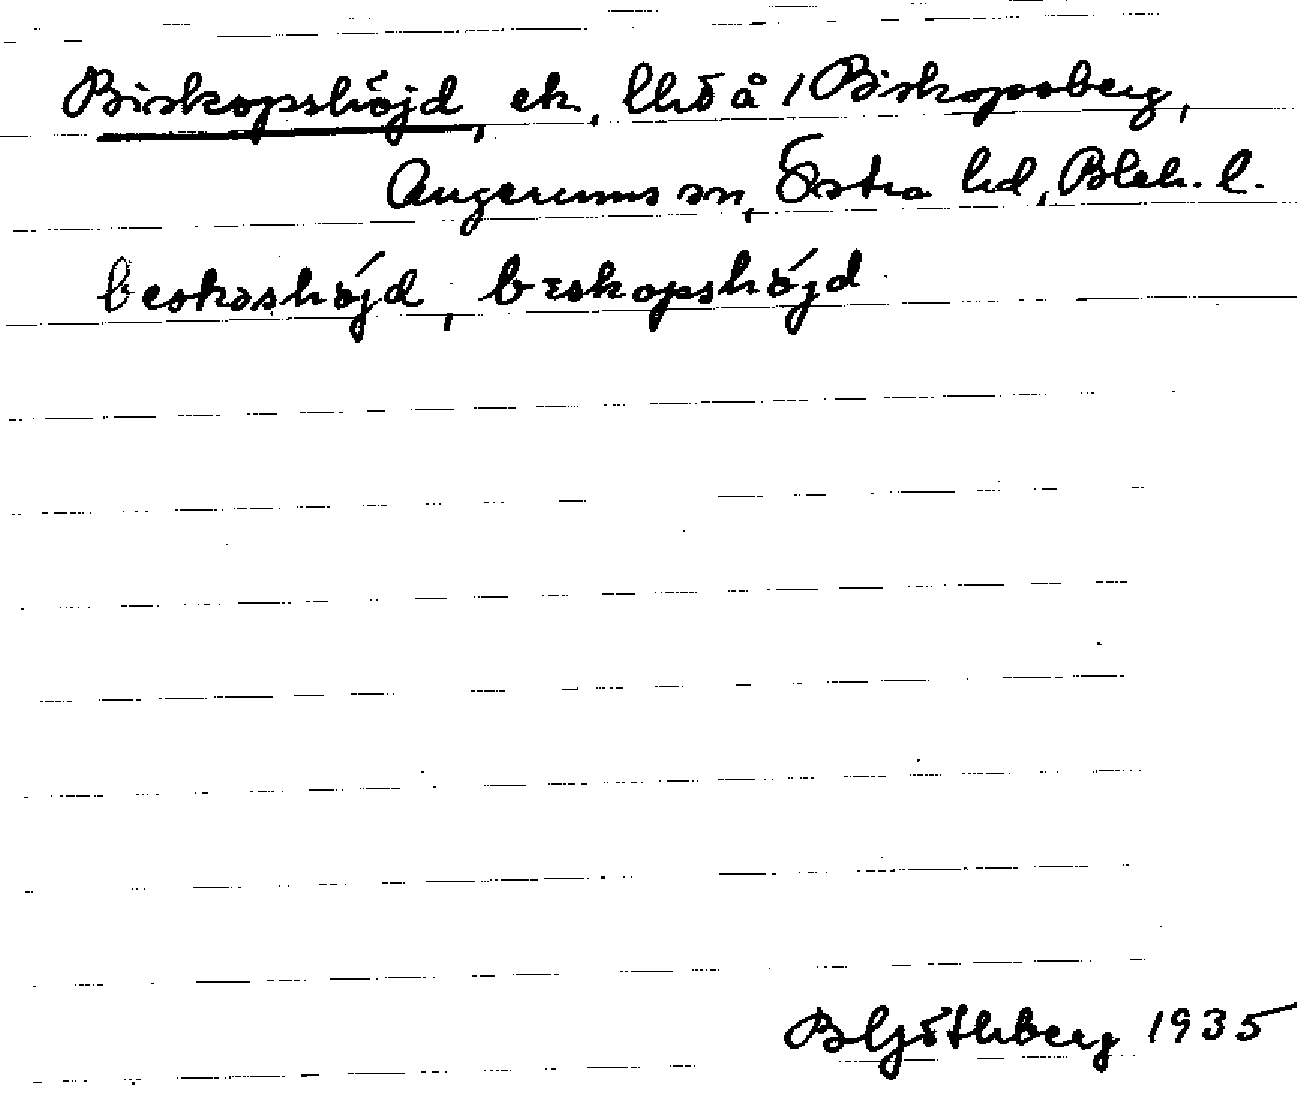 Biskopshöjd, ek. lhö å 1 Biskopsberg,
Augerums sn, Östra hd, Blek. l.
beskəshöjd, bɛskopshöjd
B Göthberg 1935